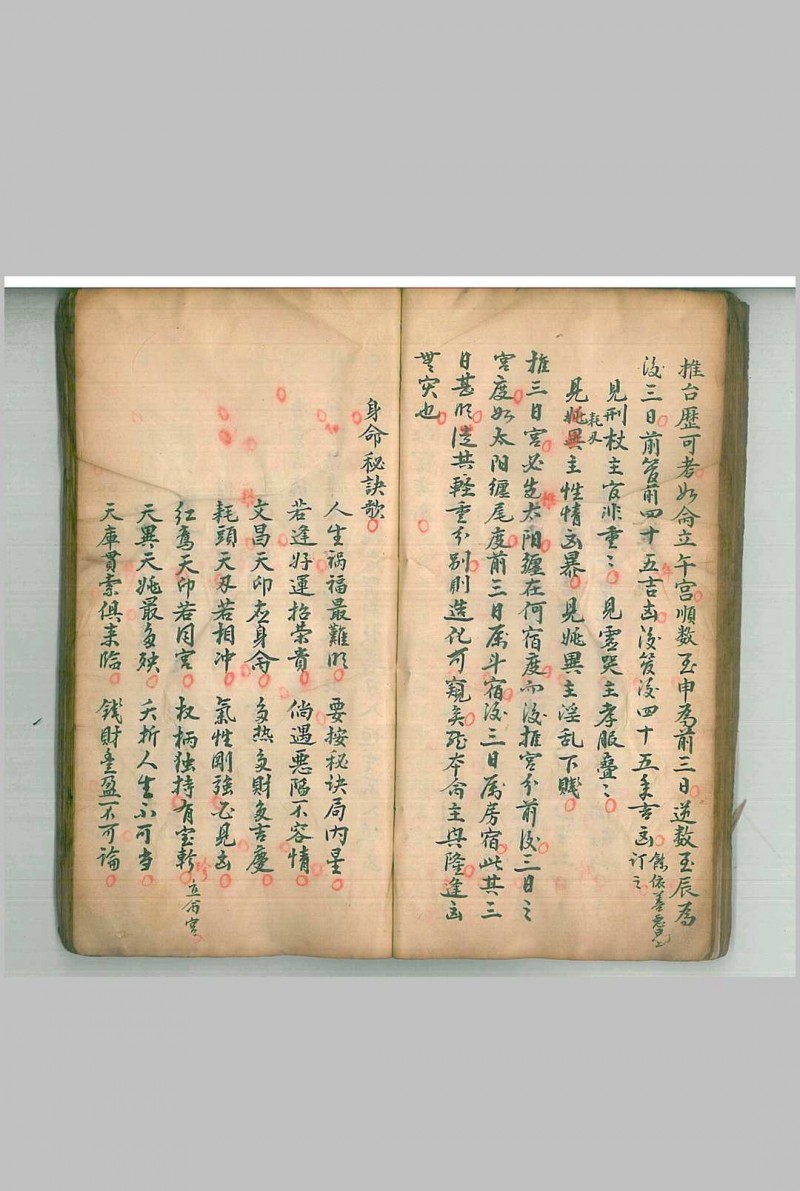 推台歷可考如命立午宮順数至申為前三日逆数至辰為
後三日前管前四十五吉凶後管後四十五年吉凶餘依善惡星訂之
見刑杖主官非重〻見雲哭主孝服疊〻
見姚異主性情凶暴見姚異主淫乱下賤
耗刃
推三日宮必先太阳纏在何宿度而後推宮分前後三日之
宮度如太阳纏尾度前三日属斗宿後三日属房宿此其三
日甚明從其軽重分别則造化可窺矣强本命主與隆逢凶
無灾也
身命秘訣歌
人生祸福最難明 要按秘诀局内星
若逢好運招荣貴 倘遇悪陷不容情
文昌天印在身命 多热多財多吉慶
耗頭天刃若相冲 氣性剛強必見凶
紅鸞天印若同宮 权柄独持有宝軫 立命宮
珍
天異天姚最多殃 夭折人生不可当
天庫貫索俱来臨 錢財豊盈不可論